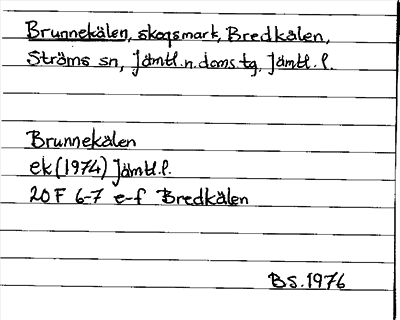 Brunnekälen, skogsmark, Bredkälen,
Ströms sn, Jämtl. n. doms tg, Jämtl. l.
Brunnekälen
ek (1974) Jämtl. l.
20 F 6-7 e-f Bredkälen
BS. 1976